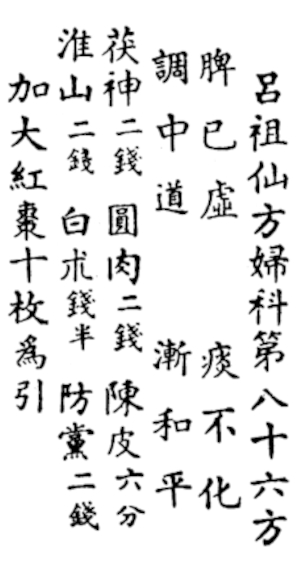 呂祖仙方婦科第八十六方
脾已虛 痰不化
調中道 漸和平
茯神二錢 圓肉二錢 陳皮六分
淮山二錢 白朮錢半 防黨二錢
加大紅棗十枚為引